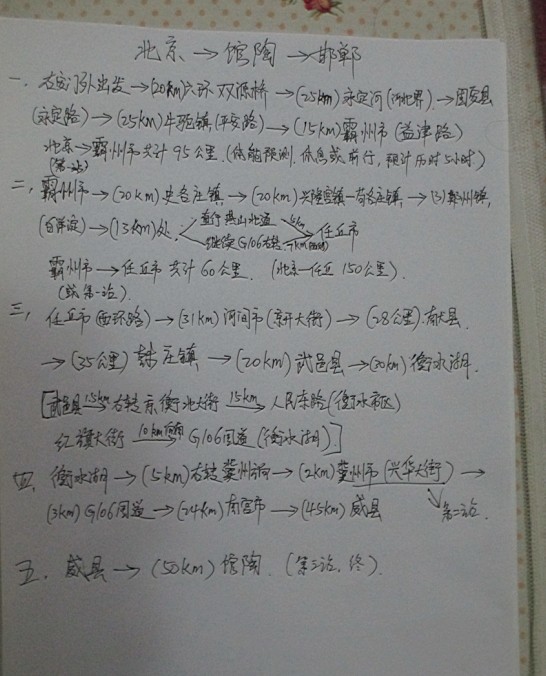 北京→馆陶→邯郸
一、右安门外出发→(20km)六环双源桥→(25km)永定河(河北界)→固安县
(永定路)→(25km)牛驼镇(平安路)→(15km)霸州市(益津路)
北京→霸州市共计95公里.(体能预测.休息或前行,预计历时5小时)
(第一站)
二,霸州市→(20km)史各庄镇→(20km)兴隆宫镇—苟各庄镇,→(3)鄚州镇,
(白洋淀)→(13km)处, 直行燕山北道 5km 任丘市
继续G106右转
霸州市→任丘市共计60公里.(北京—任丘150公里).
(或第一站)
三,任丘市(西环路)→(31km)河间市(京开大街)→(28公里)献县
→(35公里)韩庄镇→(20km)武邑县→(20km)衡水湖.
[武邑县 15km→右转京衡北大街 15km→人民东路(衡水市区)
红旗大街 10km→G106国道(衡水湖)]
四、衡水湖→(5km)右转冀州→(2km)冀州市(兴华大街)→
(3km)G106国道→(24km)南宫市→(45km)威县 第二站.
五.威县→(50km)馆陶.(第三站,终).